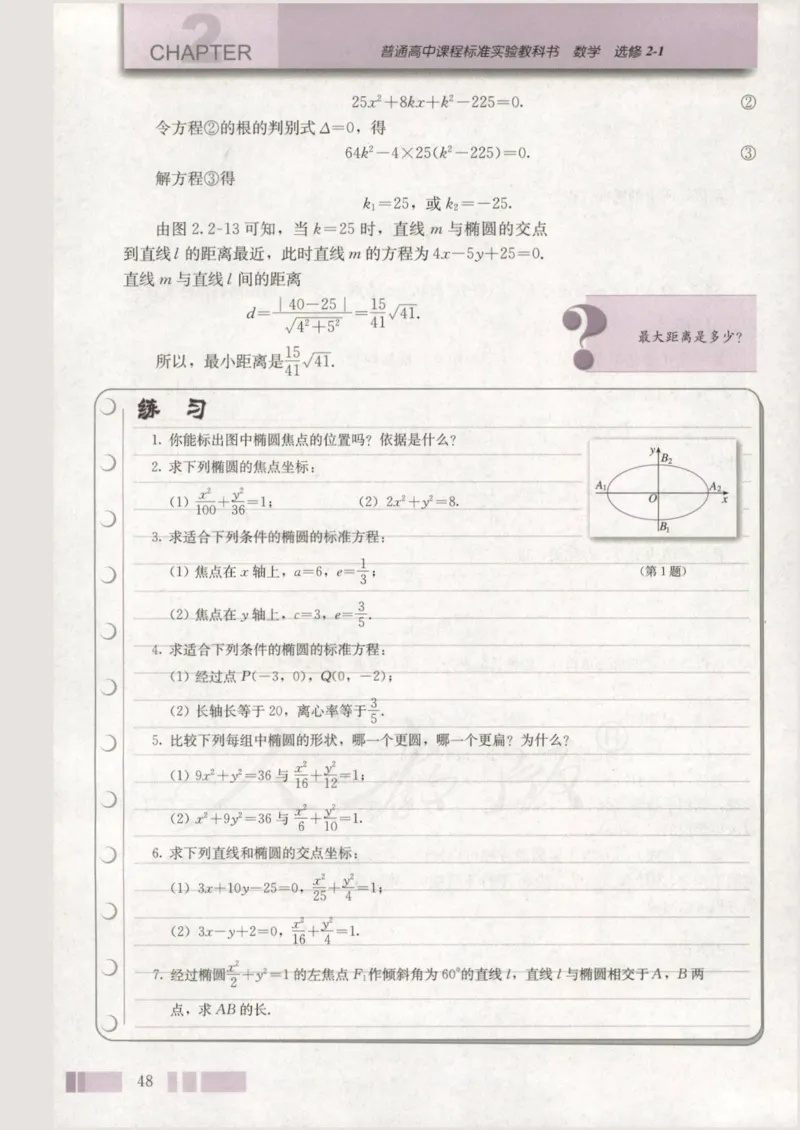 2
CHAPTER
普通高中课程标准实验教科书 数学 选修 2-1
25x²+8kx+k²-225=0. ②
令方程②的根的判别式Δ=0，得
64k²-4×25(k²-225)=0. ③
解方程③得
k₁=25，或 k₂=-25.
由图 2.2-13 可知，当 k=25 时，直线 m 与椭圆的交点
到直线 l 的距离最近，此时直线 m 的方程为 4x-5y+25=0.
直线 m 与直线 l 间的距离
d=|40-25|/√(4²+5²)=15/41√41.
?
最大距离是多少?
所以，最小距离是15/41√41.
练 习
1. 你能标出图中椭圆焦点的位置吗？依据是什么？
2. 求下列椭圆的焦点坐标：
(1) x²/100+y²/36=1; (2) 2x²+y²=8.
y B₂
A₁ O A₂ x
B₁
(第 1 题)
3. 求适合下列条件的椭圆的标准方程：
(1) 焦点在 x 轴上，a=6，e=1/3;
(2) 焦点在 y 轴上，c=3，e=3/5.
4. 求适合下列条件的椭圆的标准方程：
(1) 经过点 P(-3，0)，Q(0，-2);
(2) 长轴长等于 20，离心率等于3/5.
5. 比较下列每组中椭圆的形状，哪一个更圆，哪一个更扁？为什么？
(1) 9x²+y²=36 与 x²/16+y²/12=1;
(2) x²+9y²=36 与 x²/6+y²/10=1.
6. 求下列直线和椭圆的交点坐标：
(1) 3x+10y-25=0，x²/25+y²/4=1;
(2) 3x-y+2=0，x²/16+y²/4=1.
7. 经过椭圆x²/2+y²=1 的左焦点 F₁作倾斜角为 60°的直线 l，直线 l 与椭圆相交于 A，B 两
点，求 AB 的长.
48